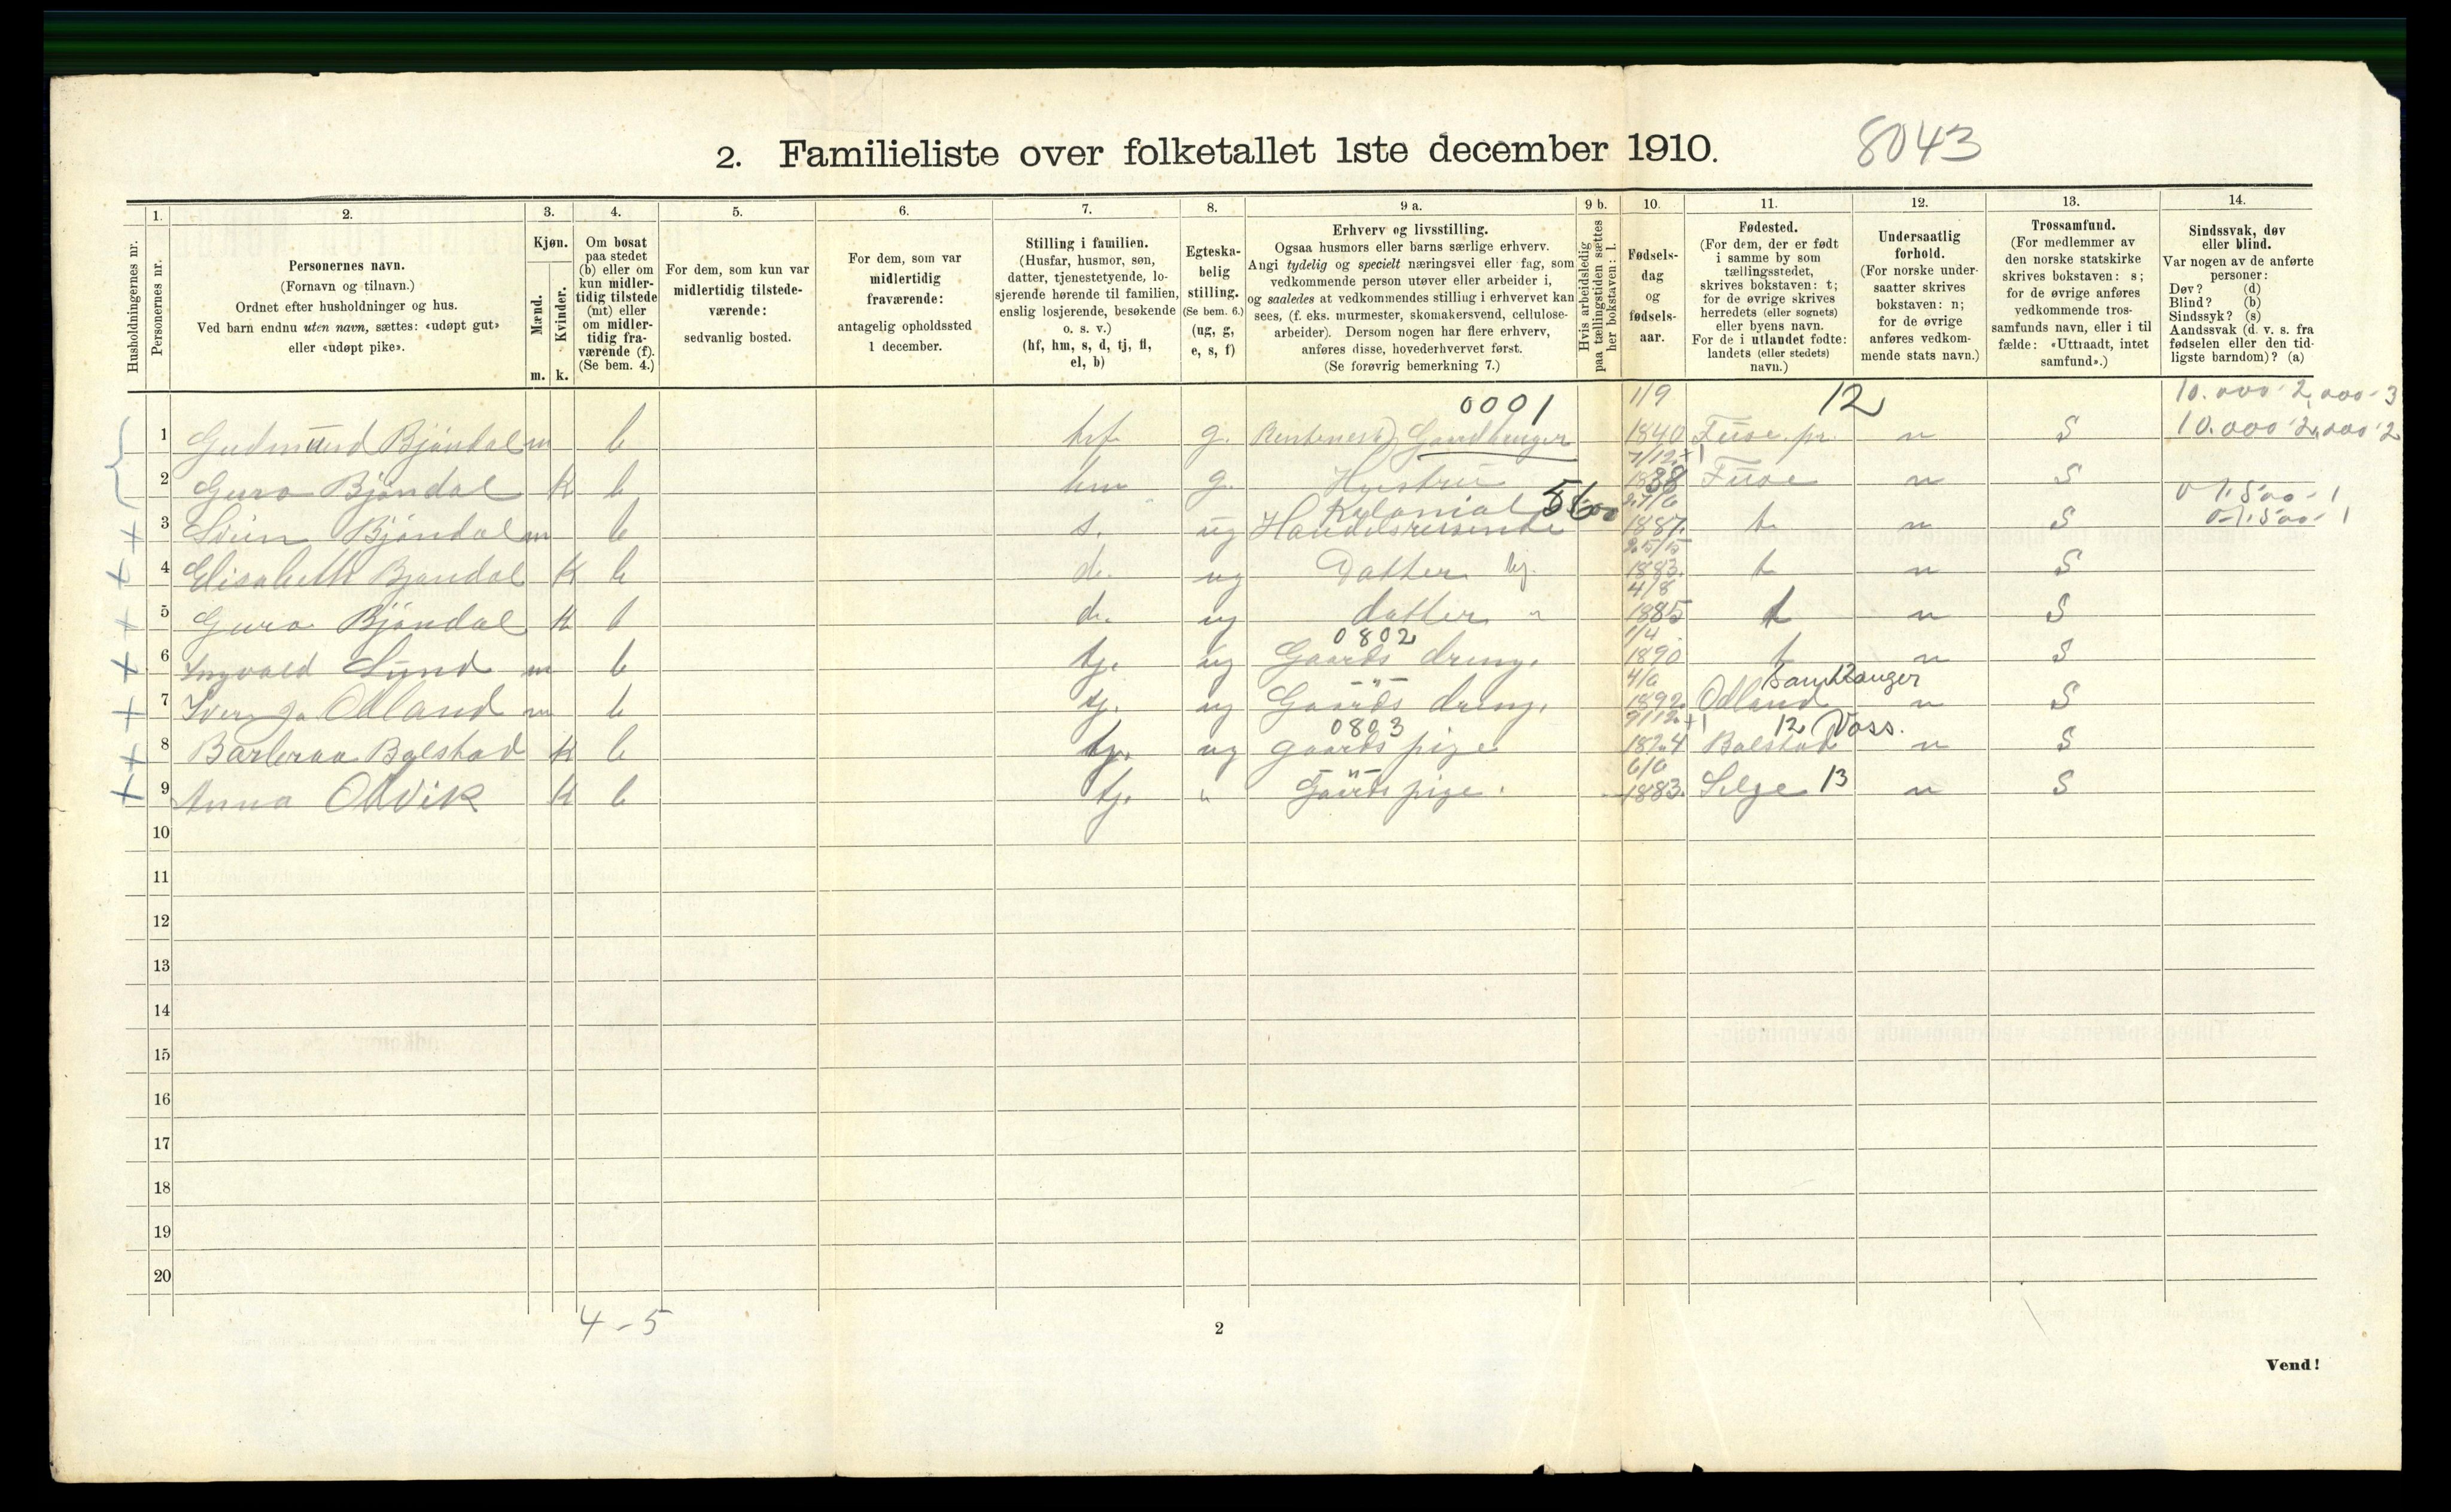 2. Familieliste over folketallet 1ste december 1910. 8043
Husholdningernes nr.
1. Personernes nr.
2. Personernes navn. (Fornavn og tilnavn.) Ordnet efter husholdninger og hus. Ved barn endnu uten navn, sættes: «udøpt gut» eller «udøpt pike».
3. Kjøn. Mænd. m. Kvinder. k.
4. Om bosat paa stedet (b) eller om kun midlertidig tilstede (mt) eller om midlertidig fraværende (f). (Se bem. 4.)
5. For dem, som kun var midlertidig tilstedeværende: sedvanlig bosted.
6. For dem, som var midlertidig fraværende: antagelig opholdssted 1 december.
7. Stilling i familien. (Husfar, husmor, søn, datter, tjenestetyende, losjerende hørende til familien, enslig losjerende, besøkende o. s. v.) (hf, hm, s, d, tj, fl, el, b)
8. Egteskabelig stilling. (Se bem. 6.) (ug, g, e, s, f)
9 a. Erhverv og livsstilling. Ogsaa husmors eller barns særlige erhverv. Angi tydelig og specielt næringsvei eller fag, som vedkommende person utøver eller arbeider i, og saaledes at vedkommendes stilling i erhvervet kan sees, (f. eks. murmester, skomakersvend, cellulosearbeider). Dersom nogen har flere erhverv, anføres disse, hovederhvervet først. (Se forøvrig bemerkning 7.)
9 b. Hvis arbeidsledig paa tællingstiden sættes her bokstaven: l.
10. Fødselsdag og fødselsaar.
11. Fødested. (For dem, der er født i samme by som tællingsstedet, skrives bokstaven: t; for de øvrige skrives herredets (eller sognets) eller byens navn. For de i utlandet fødte: landets (eller stedets) navn.)
12. Undersaatlig forhold. (For norske undersaatter skrives bokstaven: n; for de øvrige anføres vedkommende stats navn.)
13. Trossamfund. (For medlemmer av den norske statskirke skrives bokstaven: s; for de øvrige anføres vedkommende trossamfunds navn, eller i tilfælde: «Uttraadt, intet samfund».)
14. Sindssvak, døv eller blind. Var nogen av de anførte personer: Døv? (d) Blind? (b) Sindssyk? (s) Aandssvak (d. v. s. fra fødselen eller den tidligste barndom)? (a)
0001 1/9 12 10.000-2,000-3
1 Gudmund Bjöndal m b hf g. Gaardbruger 1840 Fuse pr. n S 10.000-2,000-2
7/12 +1
2 Guro Bjöndal K b hm g. Hustru 1838 Fuse n S
Kolonial 5600 27/6 0-1.500-1
3 Svein Bjöndal m b s. ug Handelsreisende 1887. t n S 0-1.500-1
25/5
4 Elisabeth Bjöndal K b d. ug Datter hj. 1883. t n S
4/8
5 Guro Bjöndal K b d. ug datter " 1885 t n S
0802 1/4
6 Ingvald Lund m b tj. ug Gaards dreng. 1890 t n S
-"- 4/6 Samnanger 12
7 Iver Odland m b tj. ug Gaards dreng. 1892. Odland n S
0803 9/12 +1 12 Voss.
8 Barbraa Bolstad K b tj. ug gaards pige 1874 Bolstad n S
-"- 6/6
9 Anna Odvik K b tj. " Gaards pige. 1883. Selje 13 n S
10
11
12
13
14
15
16
17
18
19
20
4-5
2
Vend!